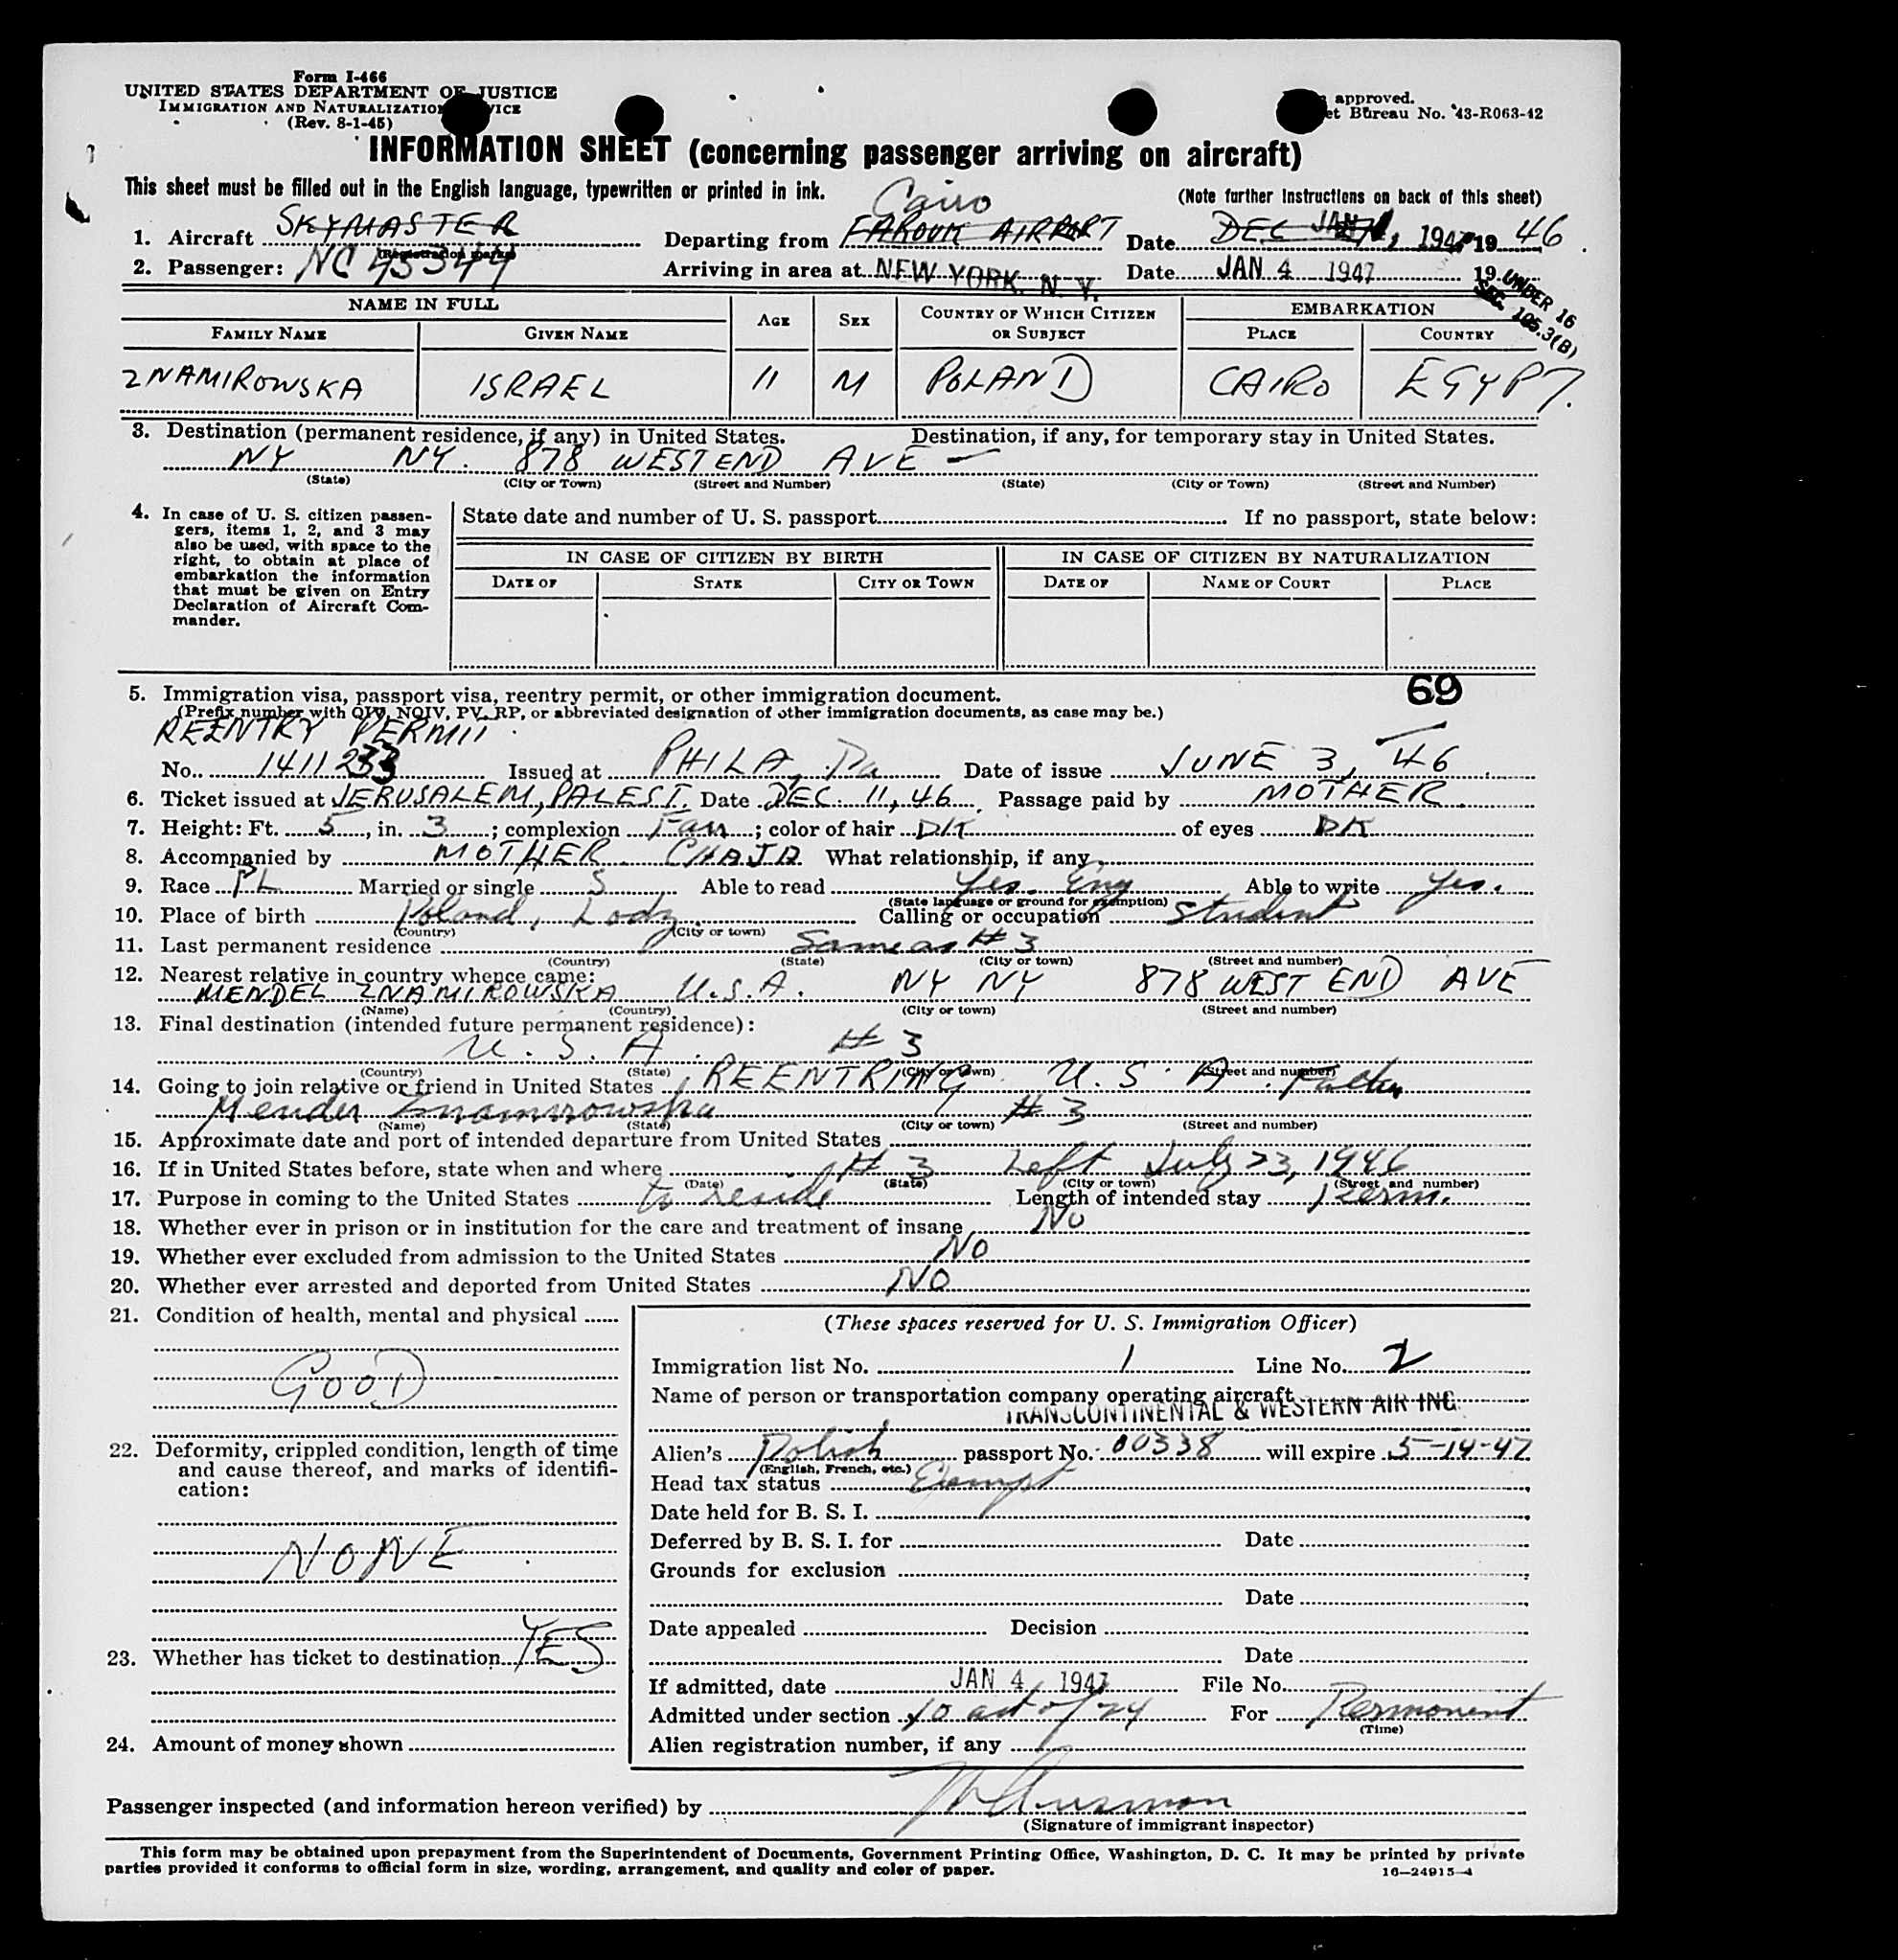 Form I-466
UNITED STATES DEPARTMENT OF JUSTICE
IMMIGRATION AND NATURALIZATION VICE
(Rev. 8-1-45)
approved.
et Bureau No. 43-R063-42
INFORMATION SHEET (concerning passenger arriving on aircraft)
This sheet must be filled out in the English language, typewritten or printed in ink.
(Note further instructions on back of this sheet)
Cairo
1. Aircraft SKYMASTER Departing from FAROUK AIRPORT Date DEC JAN 1, 1947 19 46
(Registration marks)
2. Passenger: NC 45344 Arriving in area at NEW YORK, N. Y. Date JAN 4 1947 19
UNDER 16
SEC. 105.3(B)
NAME IN FULL AGE SEX COUNTRY OF WHICH CITIZEN OR SUBJECT EMBARKATION
FAMILY NAME GIVEN NAME PLACE COUNTRY
ZNAMIROWSKA ISRAEL 11 M POLAND CAIRO EGYPT.
3. Destination (permanent residence, if any) in United States. Destination, if any, for temporary stay in United States.
NY NY. 878 WESTEND AVE —
(State) (City or Town) (Street and Number) (State) (City or Town) (Street and Number)
4. In case of U. S. citizen passen-
gers, items 1, 2, and 3 may
also be used, with space to the
right, to obtain at place of
embarkation the information
that must be given on Entry
Declaration of Aircraft Com-
mander.
State date and number of U. S. passport If no passport, state below:
IN CASE OF CITIZEN BY BIRTH IN CASE OF CITIZEN BY NATURALIZATION
DATE OF STATE CITY OR TOWN DATE OF NAME OF COURT PLACE
69
5. Immigration visa, passport visa, reentry permit, or other immigration document.
(Prefix number with QIV, NQIV, PV, RP, or abbreviated designation of other immigration documents, as case may be.)
REENTRY PERMIT
No. 1411233 Issued at PHILA, Pa Date of issue JUNE 3, 46
6. Ticket issued at JERUSALEM, PALEST. Date DEC. 11, 46 Passage paid by MOTHER
7. Height: Ft. 5, in. 3; complexion Fair; color of hair DK of eyes DK
8. Accompanied by MOTHER CHAJA What relationship, if any
9. Race PL Married or single S Able to read Yes. Eng Able to write Yes.
(State language or ground for exemption)
10. Place of birth Poland, Lodz Calling or occupation Student
(Country) (City or town)
11. Last permanent residence Same as #3
(Country) (State) (City or town) (Street and number)
12. Nearest relative in country whence came:
MENDEL ZNAMIROWSKA U.S.A. NY NY 878 WEST END AVE
(Name) (Country) (City or town) (Street and number)
13. Final destination (intended future permanent residence):
U. S. A. #3
(Country) (State) (City or town) (Street and number)
14. Going to join relative or friend in United States REENTRING U. S. A. Father
Mendel Znamirowska #3
(Name) (State) (City or town) (Street and number)
15. Approximate date and port of intended departure from United States
16. If in United States before, state when and where #3 Left July 23, 1946
(Date) (State) (City or town) (Street and number)
17. Purpose in coming to the United States to reside Length of intended stay Perm.
18. Whether ever in prison or in institution for the care and treatment of insane No
19. Whether ever excluded from admission to the United States NO
20. Whether ever arrested and deported from United States NO
21. Condition of health, mental and physical
GOOD
22. Deformity, crippled condition, length of time
and cause thereof, and marks of identifi-
cation:
NONE
23. Whether has ticket to destination YES
24. Amount of money shown
(These spaces reserved for U. S. Immigration Officer)
Immigration list No. 1 Line No. 2
Name of person or transportation company operating aircraft
TRANSCONTINENTAL & WESTERN AIR INC.
Alien's Polish passport No. 00338 will expire 5-14-47
(English, French, etc.)
Head tax status Exempt
Date held for B. S. I.
Deferred by B. S. I. for Date
Grounds for exclusion
Date
Date appealed Decision
Date
If admitted, date JAN 4 1947 File No.
Admitted under section 10 act of 24 For Permonent
(Time)
Alien registration number, if any
Passenger inspected (and information hereon verified) by
(Signature of immigrant inspector)
This form may be obtained upon prepayment from the Superintendent of Documents, Government Printing Office, Washington, D. C. It may be printed by private
parties provided it conforms to official form in size, wording, arrangement, and quality and color of paper.
16—24915-4